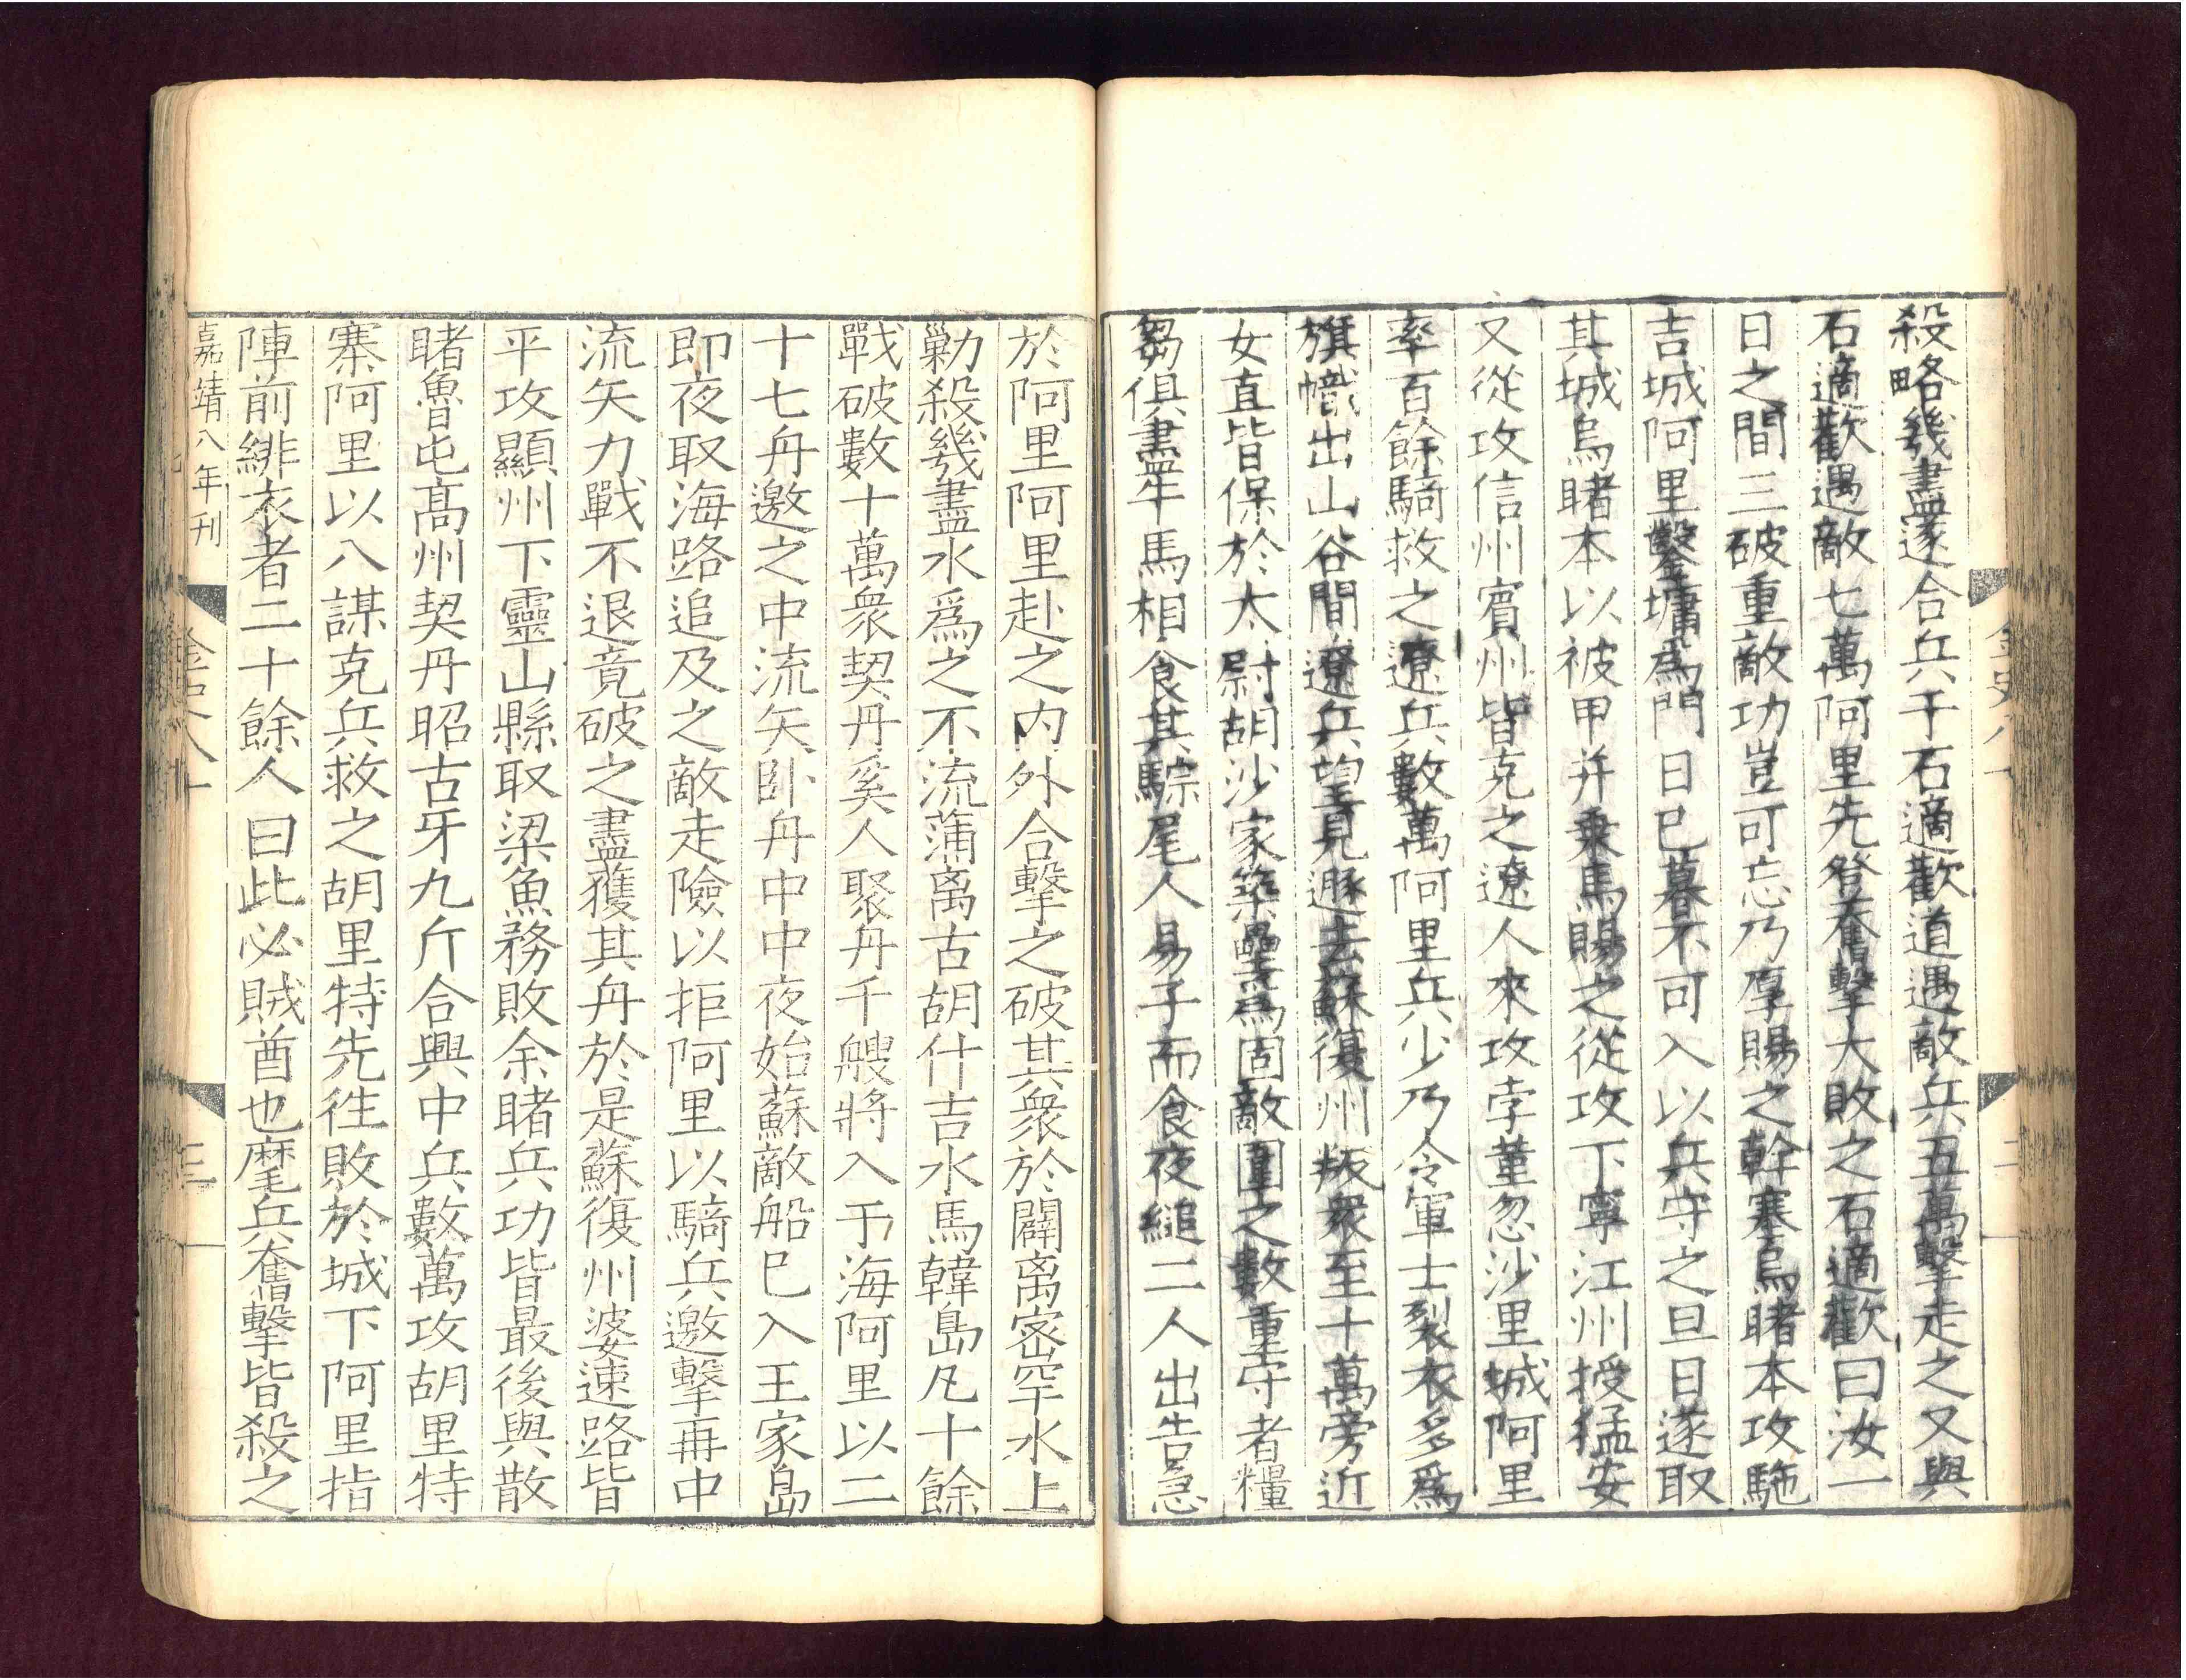 殺略幾盡遂合兵于石適歡道遇敵兵五萬擊走之又與
石適歡遇敵七萬阿里先登奮擊大敗之石適歡曰汝一
日之間三破重敵功豈可忘乃厚賜之幹塞烏睹本攻駞
吉城阿里鑿墉爲門日已暮不可入以兵守之旦日遂取
其城烏睹本以被甲并乗馬賜之從攻下寧江州授猛安
又從攻信州賓州皆克之遼人來攻孛菫忽沙里城阿里
率百餘騎救之遼兵數萬阿里兵少乃令軍士裂衣多爲
旗幟出山谷間遼兵望見遯去蘇復州叛衆至十萬旁近
女直皆保於太尉胡沙家築壘爲固敵圍之數重守者糧
芻俱盡牛馬相食其騣尾人易子而食夜縋二人出告急
金史八十
二
於阿里阿里赴之内外合擊之破其衆於闢离密罕水上
勦殺幾盡水爲之不流蒲离古胡什吉水馬韓島凡十餘
戰破數十萬衆契丹奚人聚舟千艘將入于海阿里以二
十七舟邀之中流矢卧舟中中夜始蘇敵船已入王家島
即夜取海路追及之敵走險以拒阿里以騎兵邀擊再中
流矢力戰不退竟破之盡獲其舟於是蘇復州婆速路皆
平攻顯州下靈山縣取梁魚務敗余睹兵功皆最後與散
睹魯屯髙州契丹昭古牙九斤合興中兵數萬攻胡里特
寨阿里以八謀克兵救之胡里特先徃敗於城下阿里指
陣前緋衣者二十餘人曰此必賊酋也麾兵奮擊皆殺之
嘉靖八年刊
金史八十
三